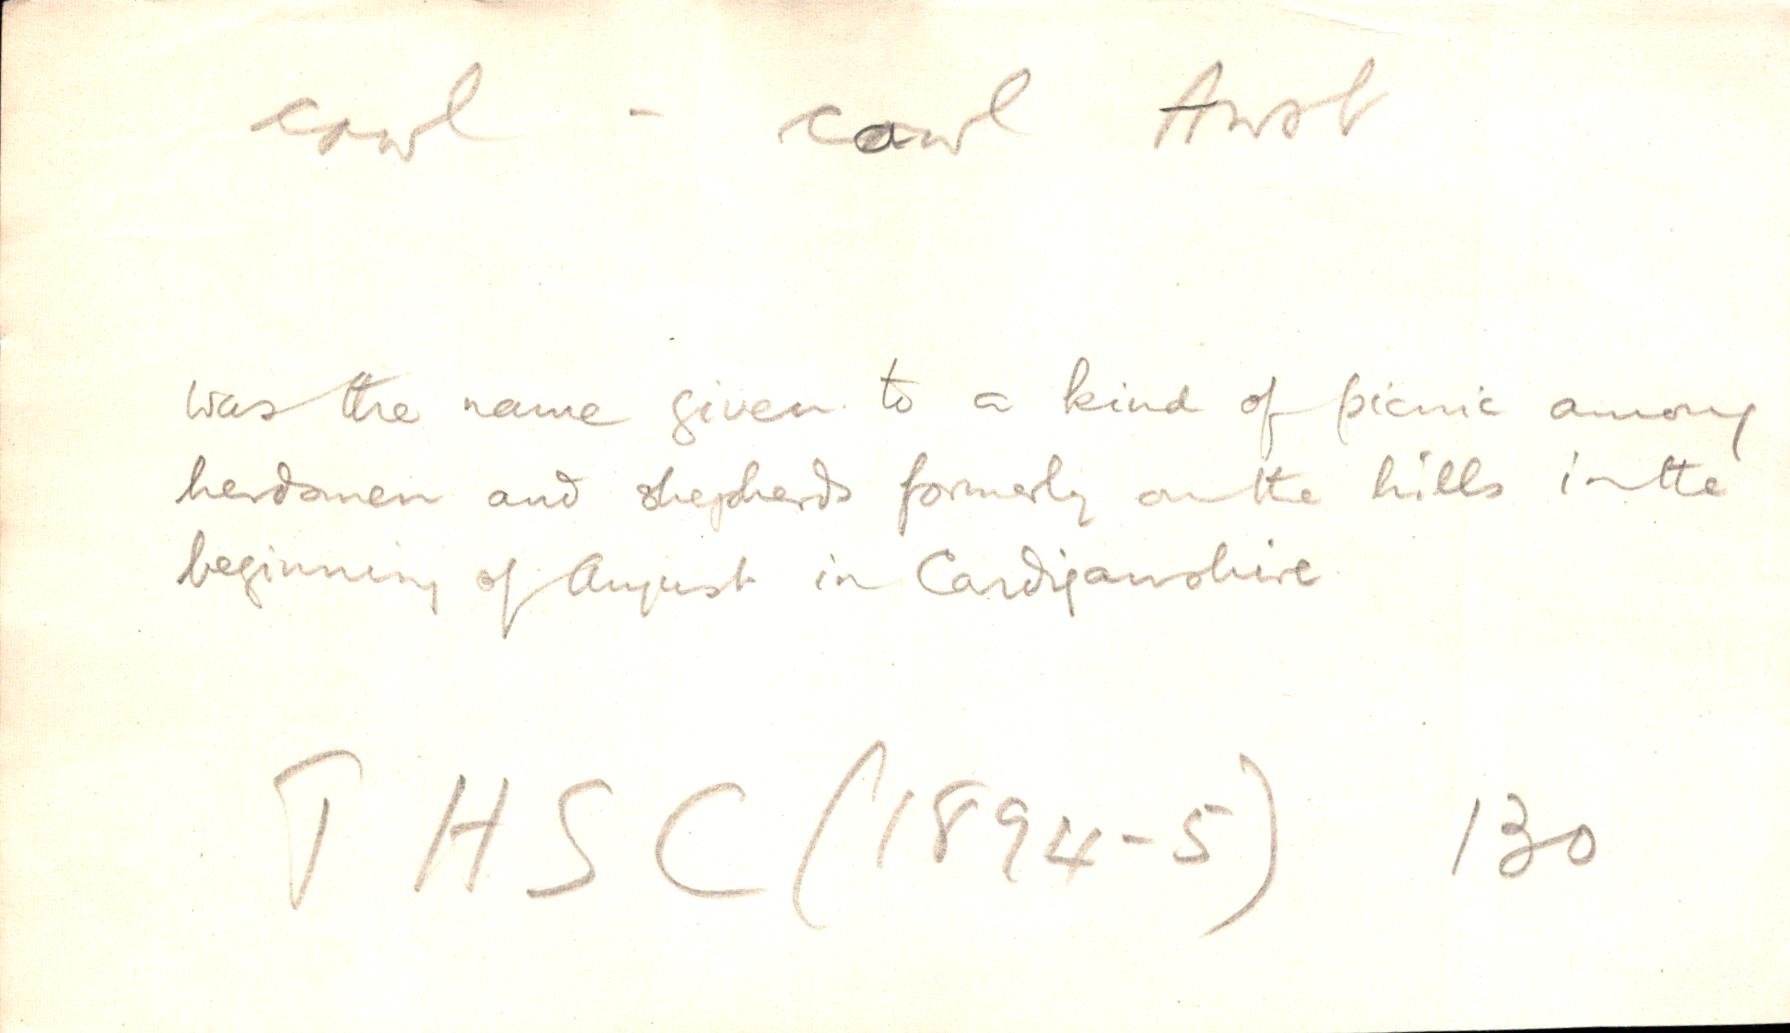 cawl - cawl Awst
was the name given to a kind of picnic among
herdsmen and shepherds formerly on the hills in the
beginning of August in Cardiganshire
THSC (1894-5) 130